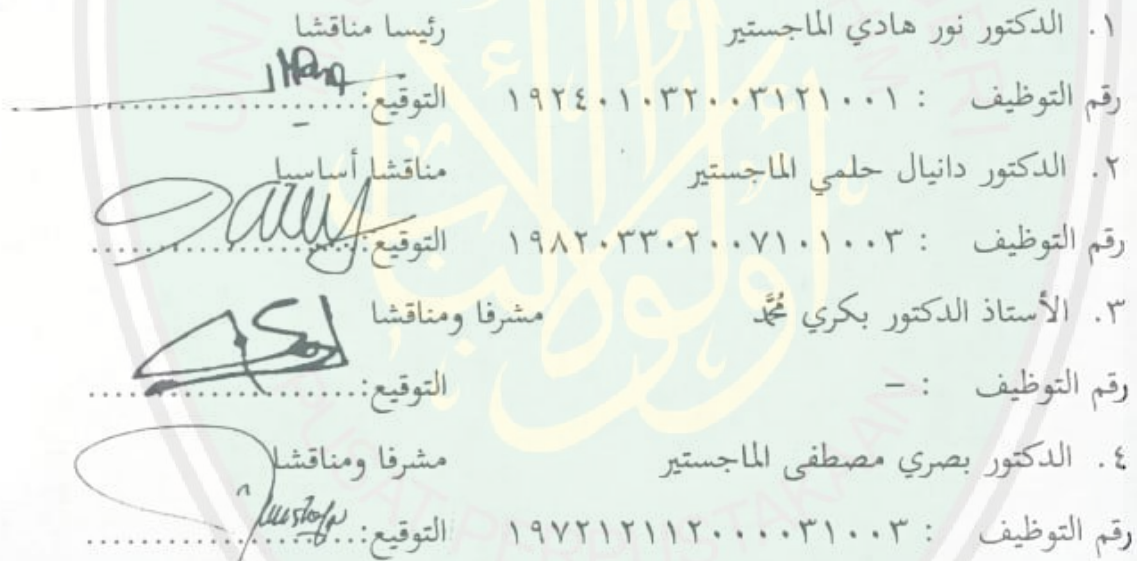 ١. الدكتور نور هادي الماجستير رئيسا مناقشا
رقم التوظيف : ١٩٢٤٠١٠٣٢٠٠٣١٢١٠٠١ التوقيع:....................
٢. الدكتور دانيال حلمي الماجستير مناقشا أساسيا
رقم التوظيف : ١٩٨٢٠٣٣٠٢٠٠٧١٠١٠٠٣ التوقيع:....................
٣. الأستاذ الدكتور بكري محمد مشرفا ومناقشا
رقم التوظيف : – التوقيع:....................
٤. الدكتور بصري مصطفى الماجستير مشرفا ومناقشا
رقم التوظيف : ١٩٧٢١٢١١٢٠٠٠٠٣١٠٠٣ التوقيع:....................